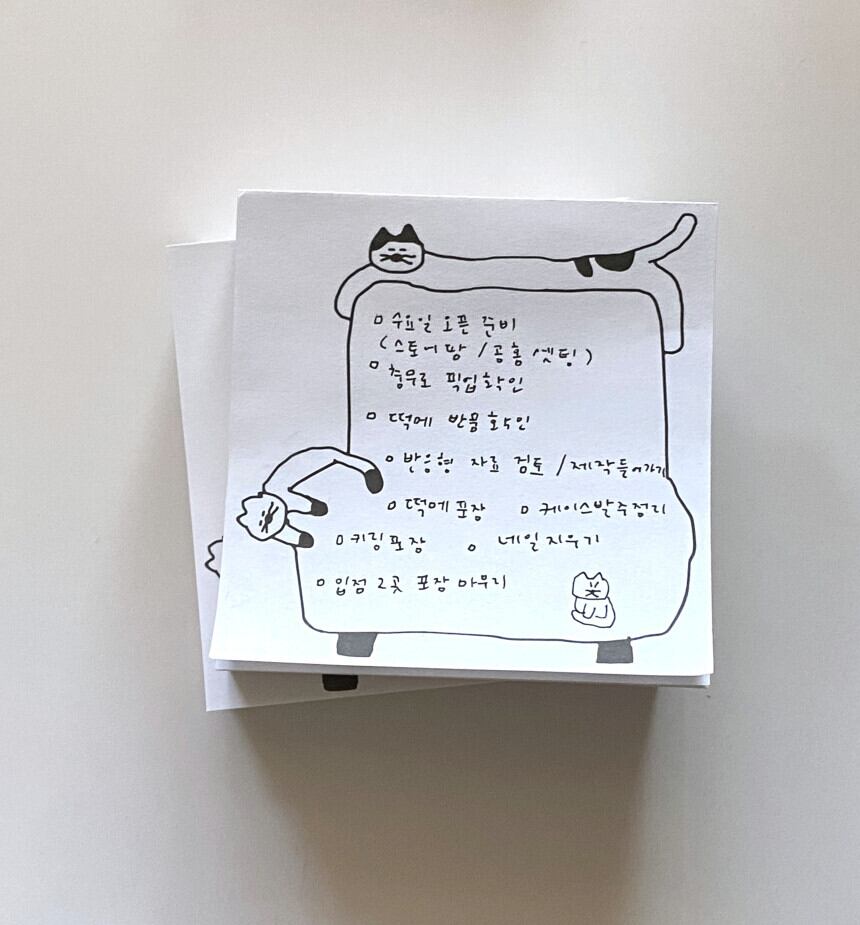 수요일 오픈 준비
(스토어팜 / 공홈 셋팅)
충무로 픽업확인
떡메 반품확인
반응형 자료 검토 / 제작들어가기
떡메포장 케이스발주정리
키링포장 네일지우기
입점 2곳 포장 마무리